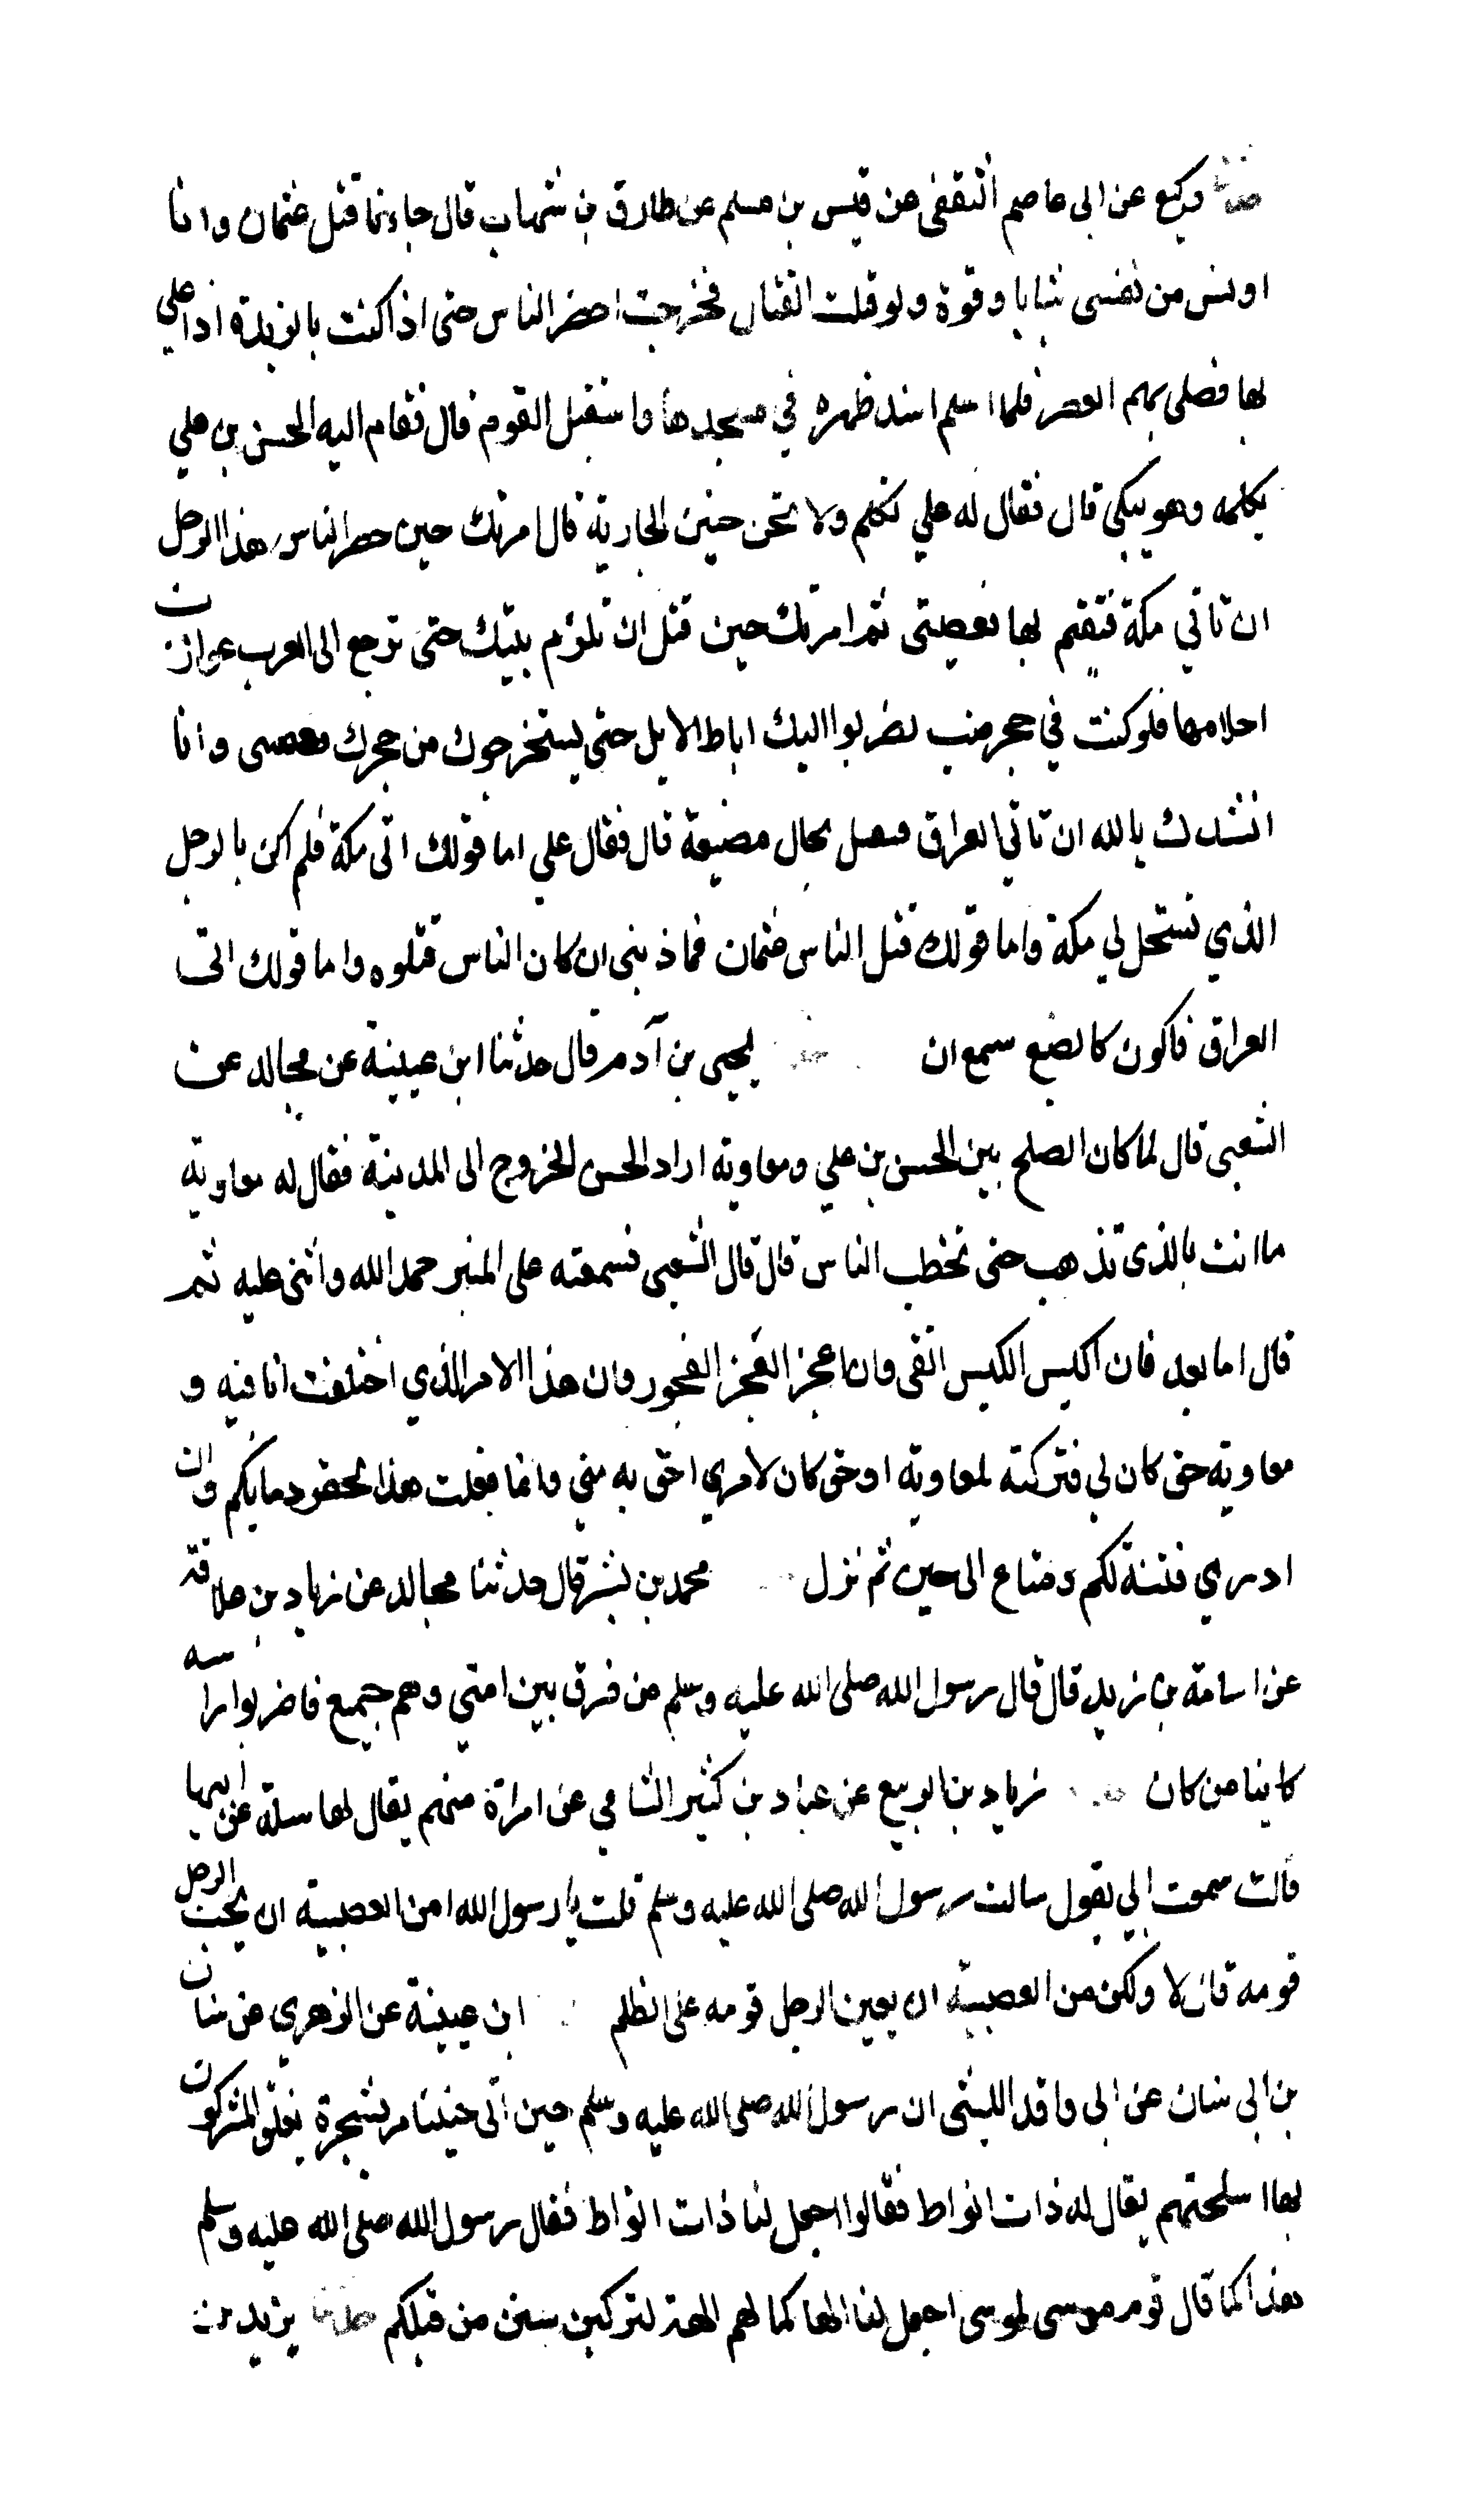 وكيع عن ابى عاصم الثقفى عن قيس بن مسلم عن طارق بن شهاب قال جاءنا قتل عثمان وانا
اونس من نفسى شبابا وقوة ولو قتلت القتال فخرجت احضر الناس حتى اذا كنت بالربذة اذا علي
بها فصلى بهم العصر فلما سلم اسند ظهره في مسجدها واستقبل القوم قال فقام اليه الحسن بن علي
يكلمه وهو يبكي قال فقال له علي تكلم ولا تحن حنين الجارية قال امرتك حين حصر الناس هذا الرجل
ان تاتي مكة فتقيم بها فعصيتنى ثم امرتك حين قتل ان تلزم بيتك حتى ترجع الى العرب عوازب
احلامها فلو كنت في جحر ضب لضربوا اليك اباط الابل حتى يستخرجوك من جحرك فعصيتنى وانا
انشدك بالله ان تاتي العراق فتقتل بحال مضيعة قال فقال علي اما قولك اتى مكة فلم اكن بالرجل
الذي تستحل لي مكة واما قولك قتل الناس عثمان فما ذنبى ان كان الناس قتلوه واما قولك اتى
العراق فاكون كالضبع سمع ان يحيى بن آدم قال حدثنا ابن عيينة عن مجالد عن
الشعبى قال لما كان الصلح بين الحسن بن علي ومعاوية اراد الحسن الخروج الى المدينة فقال له معاوية
ما انت بالذى تذهب حتى تخطب الناس قال قال الشعبى فسمعته على المنبر حمد الله واثنى عليه ثم
قال اما بعد فان اكيس الكيس التقى وان اعجز العجز الفجور وان هذا الامر الذي اختلفت انا فيه و
معاوية حق كان لي فتركته لمعاوية او حق كان لامري احق به مني وانما فعلت هذا لحقن دمايكم وان
ادري فتنة لكم ومتاع الى حين ثم نزل محمد بن بشر قال حدثنا مجالد عن زياد بن علاقة
عن اسامة بن زيد قال قال رسول الله صلى الله عليه وسلم من فرق بين امتي وهم جميع فاضربوا راسه
كاينا من كان زياد بن الربيع عن عباد بن كثير الشامي عن امراة منهم يقال لها سلة عن ابيها
قالت سمعت ابي يقول سالت رسول الله صلى الله عليه وسلم قلت يا رسول الله امن العصبية ان يحب الرجل
قومه قال لا ولكن من العصبية ان يعين الرجل قومه على الظلم ابن عيينة عن الزهري عن سنان
بن ابى سنان عن ابى واقد الليثى ان رسول الله صلى الله عليه وسلم حين اتى حنينا مر بشجرة يعلق المشركون
بها اسلحتهم يقال له ذات انواط فقالوا اجعل لنا ذات انواط فقال رسول الله صلى الله عليه وسلم
هذا كما قال قوم موسى لموسى اجعل لنا الها كما لهم الهة لتركبن سنن من قبلكم يزيد بن